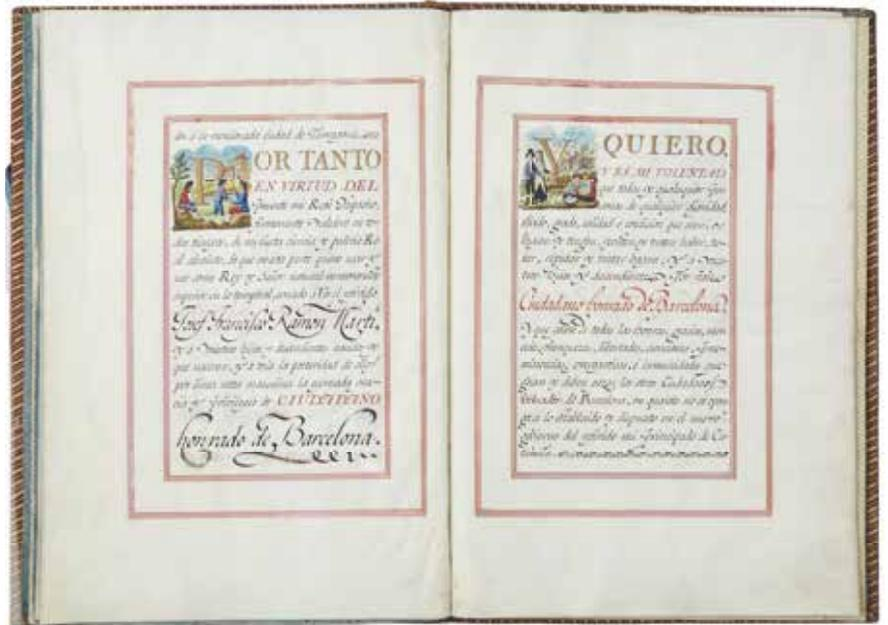 en la mencionada ciudad de Tarragona, una
POR TANTO
EN VIRTUD DEL
presente mi Real Despacho,
firmemente valedero en to-
dos tiempos, de mi cierta ciencia y poderio Re-
al absoluto, de que en esta parte quiero usar y
uso como Rey y Señor natural no reconociente
superior en lo temporal, concedo á Vos el referido
Josef Francisco Ramon Martí,
y á vuestros hijos y descendientes nacidos y
que nacieren, y á toda la posteridad de ellos
por linea recta masculina la
y Privilegio de CIUDADANO
honrado de Barcelona.
Y QUIERO,
Y ES MI VOLUNTAD
que todos y qualesquier per-
sonas de qualquier dignidad,
estado, grado, calidad ó condicion que sean, os
hayan y tengan, y
y á vues-
tros hijos y descendientes por tales
Ciudadano honrado de Barcelona:
Y que de todas las honras, gracias,
franquezas, libertades,
é inmunidades que
gozan y deben gozar los otros Ciudadanos
honrados de Barcelona, en quanto no se opon-
ga á lo establecido y dispuesto en el nuevo
gobierno del referido mi Principado de Ca-
taluña